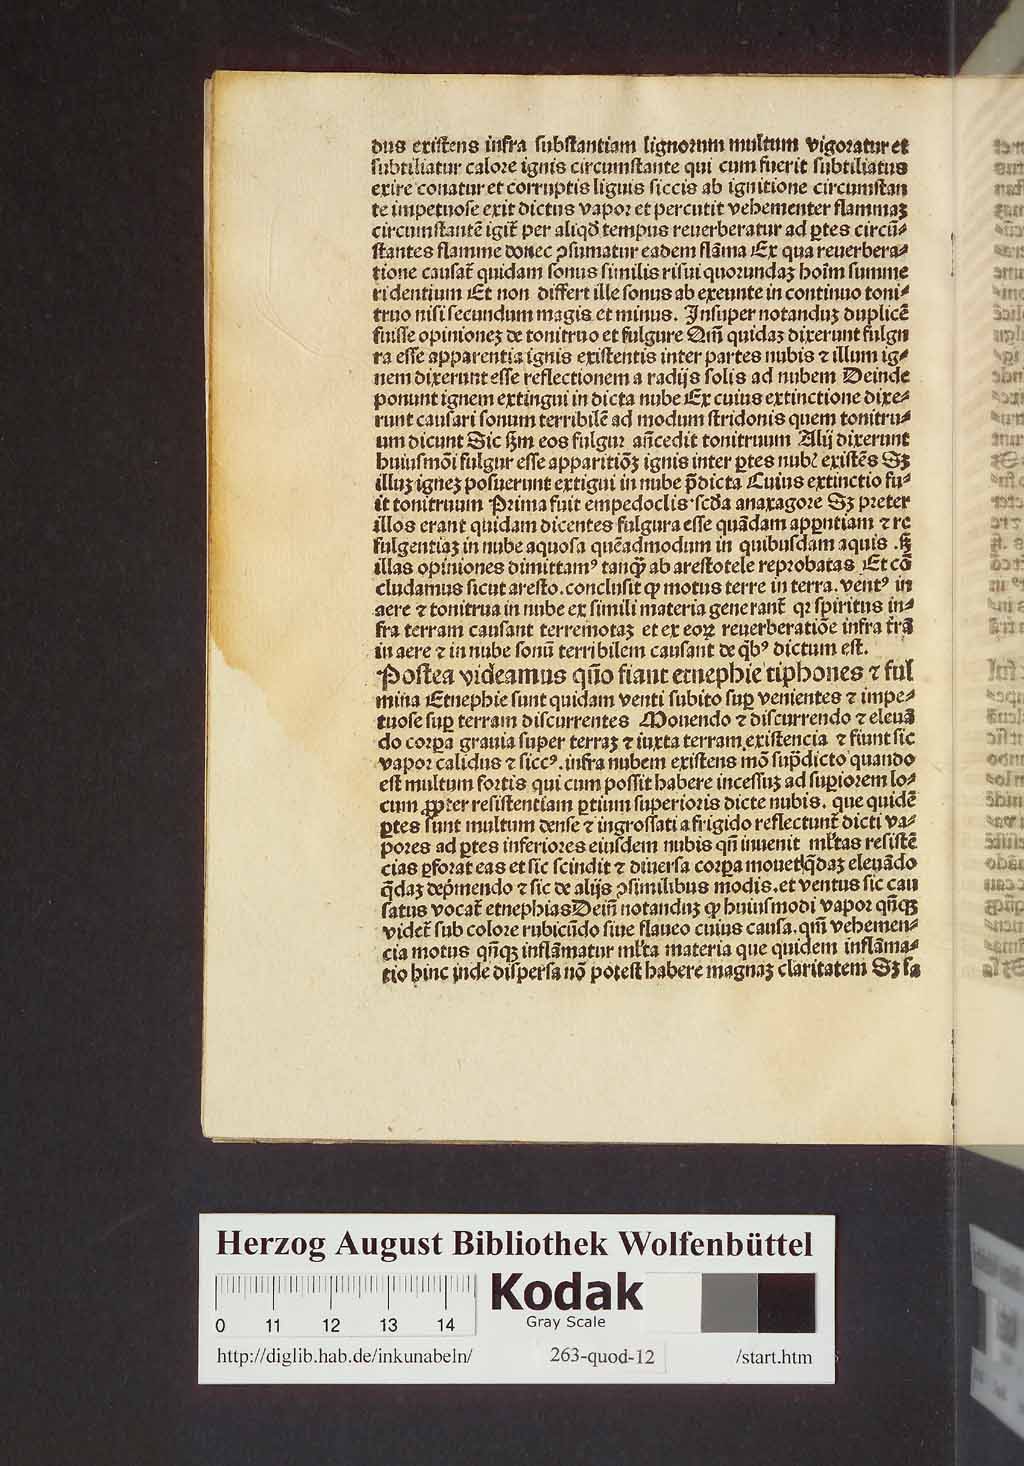 dus existens infra substantiam lignorum multum vigoratur et
subtiliatur calore ignis circumstante qui cum fuerit subtiliatus
exire conatur et corruptis lignis siccis ab ignitione circumstan
te impetuose exit dictus vapor et percutit vehementer flammaꝫ
circumstantē igit᷑ per aliqđ tempus reuerberatur ad ꝑtes circū⸗
stantes flamme donec ꝯsumatur eadem flāma Ex qua reuerbera⸗
tione causat᷑ quidam sonus similis risui quorundaꝫ hoīm summe
ridentium Et non differt ille sonus ab exeunte in continuo toni⸗
truo nisi secundum magis et minus. Insuper notanduꝫ duplicē
fuisse opinioneꝫ de tonitruo et fulgure Qm̄ quidaꝫ dixerunt fulgu
ra esse apparentia ignis existentis inter partes nubis ⁊ illum ig⸗
nem dixerunt esse reflectionem a radijs solis ad nubem Deinde
ponunt ignem extingui in dicta nube Ex cuius extinctione dixe⸗
runt causari sonum terribilē ad modum stridonis quem tonitru⸗
um dicunt Sic ẜm eos fulgur an̄cedit tonitruum Alij dixerunt
huiusmōi fulgur esse apparitiōꝫ ignis inter ꝑtes nubꝭ existēs Sꝫ
illuꝫ igneꝫ posuerunt extigui in nube p̄dicta Cuius extinctio fu⸗
it tonitruum Prima fuit empedoclis scd̄a anaxagore Sꝫ preter
illos erant quidam dicentes fulgura esse quādam apꝑntiam ⁊ re
fulgentiaꝫ in nube aquosa quēadmodum in quibusdam aquis .sꝫ
illas opiniones dimittamꝰ tanꝙ̄ ab arestotele reprobatas Et cō
cludamus sicut aresto. conclusit ꝙ motus terre in terra. ventꝰ in
aere ⁊ tonitrua in nube ex simili materia generant᷑ qꝛ spiritus in⸗
fra terram causant terremotaꝫ et ex eoꝝ reuerberatiōe infra t᷑rā
in aere ⁊ in nube sonū terribilem causant de q̄bꝰ dictum est.
Postea videamus quō fiant etnephie tiphones ⁊ ful
mina Etnephie sunt quidam venti subito suꝑ venientes ⁊ impe⸗
tuose suꝑ terram discurrentes Mouendo ⁊ discurrendo ⁊ eleuā
do corꝑa grauia super terraꝫ ⁊ iuxta terram existencia ⁊ fiunt sic
vapor calidus ⁊ siccꝰ. infra nubem existens mō sup̄dicto quando
est multum fortis qui cum possit habere incessuꝫ ad suꝑiorem lo⸗
cum ꝓpter resistentiam ꝑtium superioris dicte nubis. que quidē
ꝑtes sunt multum dense ⁊ ingrossati a frigido reflectunt᷑ dicti va⸗
pores ad ꝑtes inferiores eiusdem nubis qn̄ inuenit ml̄tas resistē
cias ꝑforat eas et sic scindit ⁊ diuersa corꝑa mouet q̄daꝫ eleuādo
q̄daꝫ dep̄mendo ⁊ sic de alijs ꝯsimilibus modis. et ventus sic cau
satus vocat᷑ etnephias Dein̄ notanduꝫ ꝙ huiusmodi vapor qn̄qꝫ
videt᷑ sub colore rubicūdo siue flaueo cuius causa. qm̄ vehemen⸗
cia motus qn̄qꝫ inflāmatur ml̄ta materia que quidem inflāma⸗
tio hinc inde dispersa nō potest habere magnaꝫ claritatem Sꝫ sa
Herzog August Bibliothek Wolfenbüttel
Kodak
Gray Scale
0 11 12 13 14
http://diglib.hab.de/inkunabeln/ 263-quod-12 /start.htm